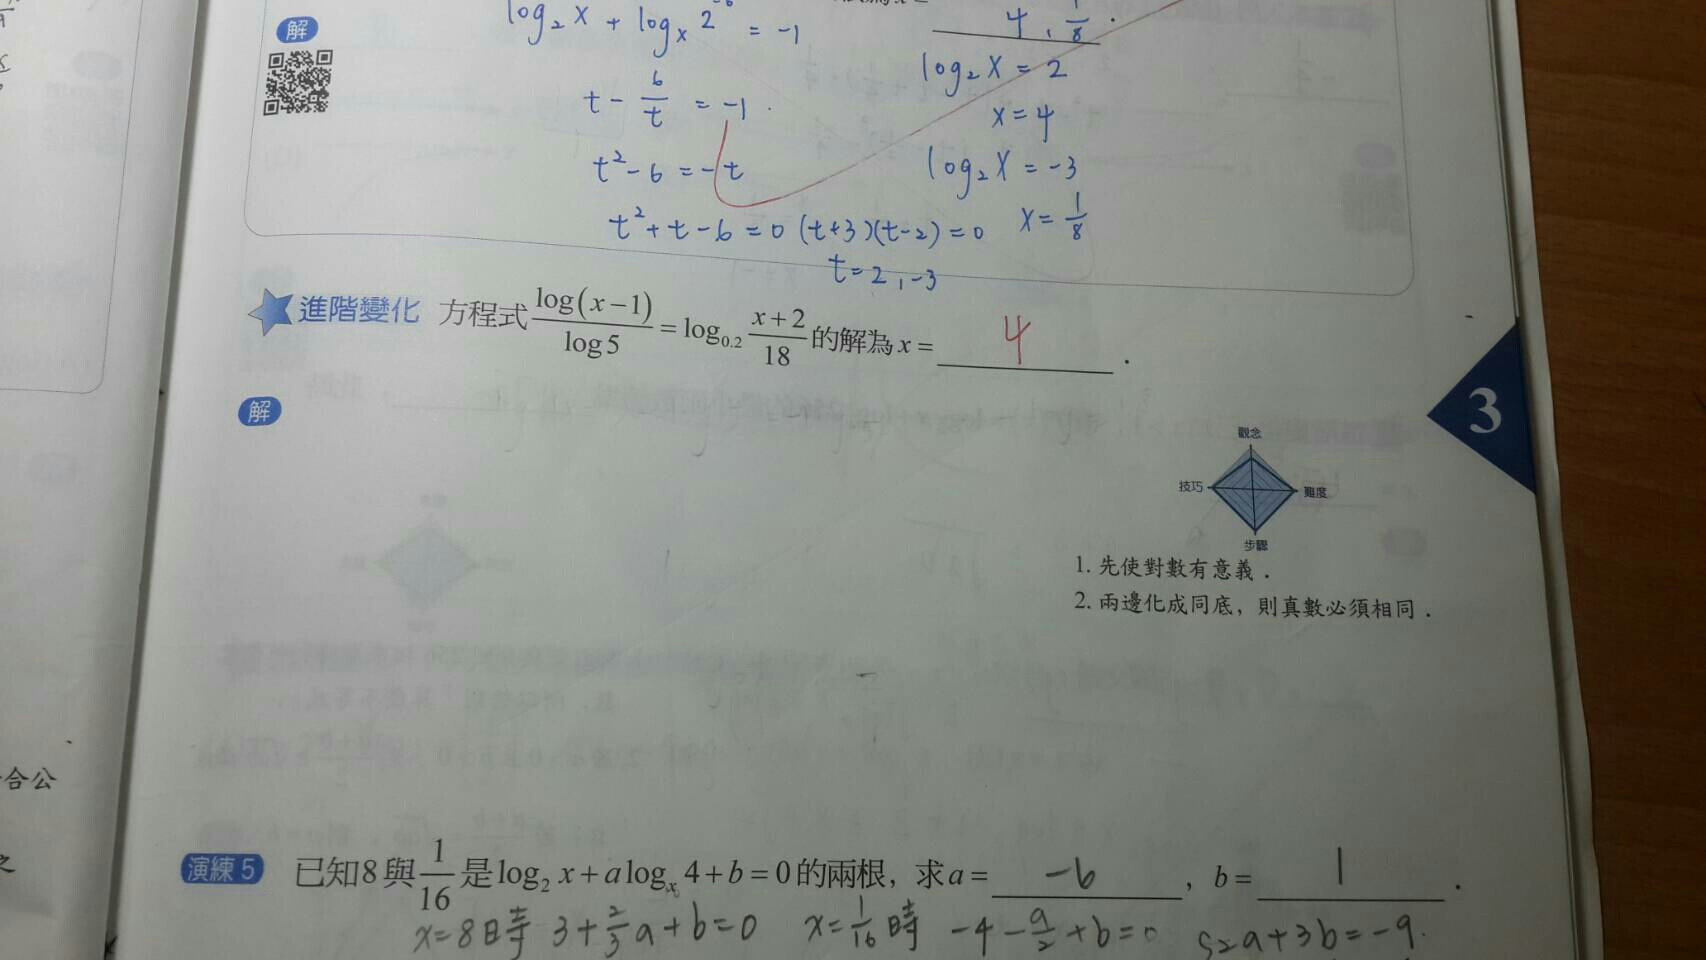 解
log₂ x + logₓ 2⁻⁶ = -1
4 , 1/8 .
t - 6/t = -1 .
t² - 6 = -t
t² + t - 6 = 0 (t+3)(t-2) = 0
t = 2 , -3
log₂ x = 2
x = 4
log₂ x = -3
x = 1/8
進階變化 方程式 log(x-1)/log5 = log₀.₂ (x+2)/18 的解為 x = 4 .
解
3
觀念
技巧
難度
步驟
1. 先使對數有意義.
2. 兩邊化成同底, 則真數必須相同.
合公
之
演練 5 已知8與1/16是log₂ x + a logₓ 4 + b = 0的兩根, 求a = -6 , b = 1 .
x=8時 3+2/3a+b=0 x=1/16時 -4-a/2+b=0 2a+3b=-9.